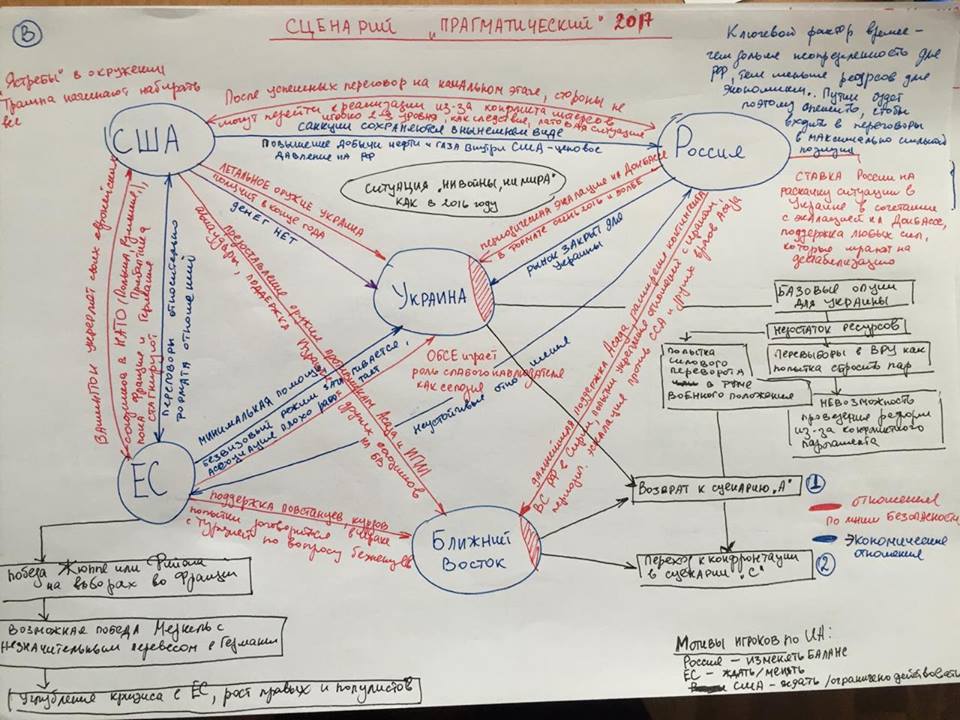 В
СЦЕНАРИЙ „ПРАГМАТИЧЕСКИЙ" 2017
Ключевой фактор время –
чем дольше неопределенность для
РФ, тем меньше ресурсов для
экономики.. Путин будет
поэтому спешить, чтобы
входить в переговоры
в максимально сильной
позиции
„Ястребы" в окружении
Трампа начинают набирать
вес
США
После успешных переговор на начальном этапе, стороны не
могут перейти к реализации из-за конфликта интересов
игроков 2-го уровня, как следствие, патовая ситуация
Санкции сохраняются в нынешнем виде
Повышение добычи нефти и газа внутри США - ценовое
давление на РФ
Россия
СИТУАЦИЯ „НИ ВОЙНЫ, НИ МИРА"
КАК В 2016 ГОДУ
СТАВКА РОССИИ НА
раскачку ситуации в
Украине в сочетании
с эскалацией на Донбассе,
поддержка любых сил,
которые играют на
дестабилизацию
ЛЕТАЛЬНОЕ ОРУЖИЕ УКРАИНА
получит в конце года
ДЕНЕГ НЕТ
периодическая эскалация на Донбассе
в формате осень 2016 и более
РЫНОК ЗАКРЫТ для
Украины
УКРАИНА
Вашингтон укрепляет своих европейских
союзников в НАТО (Польша, Румыния,
Прибалтика),
пока Франция и Германия
стагнируют
Переговоры относительно
формата отношений
предоставление оружия противникам Асада и ИГИЛ
авиаудары, поддержка
курдов
и других союзников
на БВ
дальнейшая поддержка Асада, расширение контингента
ВС РФ в Сирии, попытки укрепление отношений с Ираном,
периодич. эскалация против ССА и других врагов Асада
МИНИМАЛЬНАЯ ПОМОЩЬ,
БЕЗВИЗОВЫЙ РЕЖИМ ЗАТЯГИВАЕТСЯ,
АССОЦИАЦИЯ ПЛОХО РАБОТАЕТ
ОБСЕ играет
роль слабого наблюдателя
как сегодня
неустойчивые отношения
БАЗОВЫЕ ОПЦИИ
ДЛЯ УКРАИНЫ
НЕДОСТАТОК РЕСУРСОВ
ПОПЫТКА
СИЛОВОГО
ПЕРЕВОРОТА
в
ВОЕННОГО ПОЛОЖЕНИЯ
ПЕРЕВЫБОРЫ В ВРУ как
попытка спустить пар
НЕВОЗМОЖНОСТЬ
проведения реформ
из-за конфликтного
парламента
ЕС
поддержка повстанцев, курдов
в Ираке
попытки договориться
с Турцией по вопросу беженцев
Ближний
Восток
ВОЗВРАТ К СЦЕНАРИЮ „А"
1
Переход к конфронтации
в сценарии „С"
2
отношения
по линии безопасности
Экономические
отношения
победа Жюппе или Фийона
на выборах во Франции
Возможная победа Меркель с
незначительным перевесом в Германии
Углубление кризиса в ЕС, рост правых и популистов
Мотивы игроков по UA:
Россия – изменять баланс
ЕС – ждать/менять
США – ждать/ограничено действовать